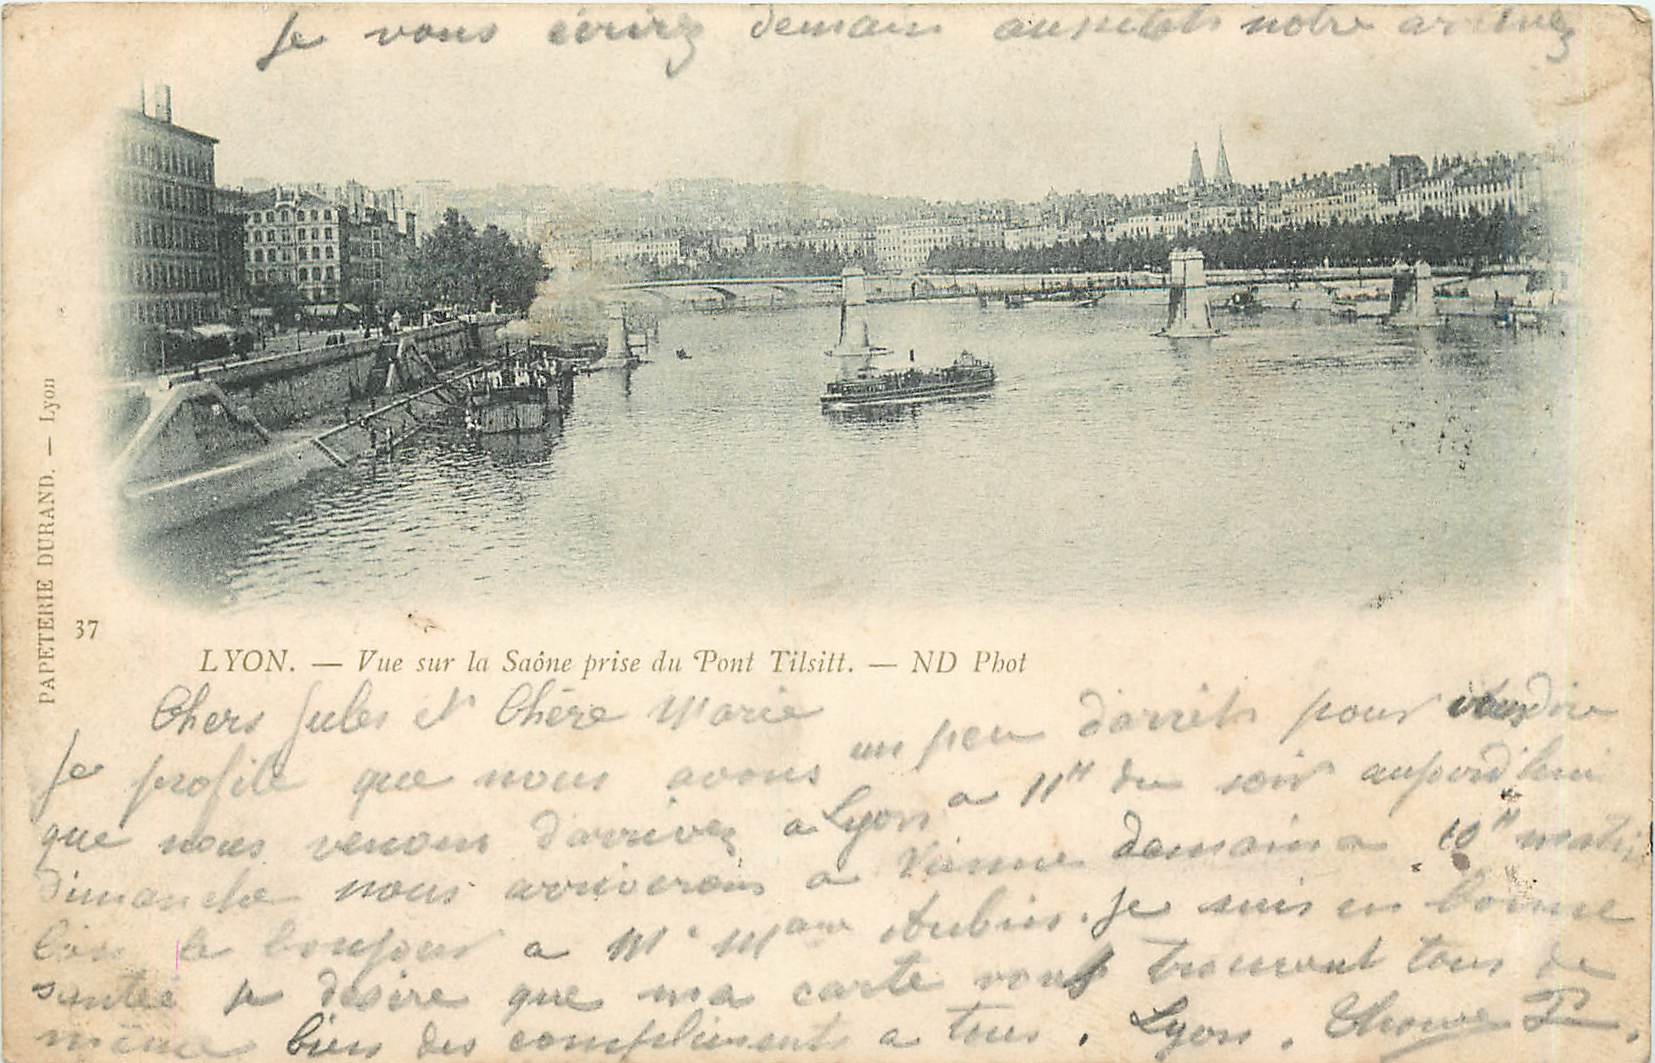 Je vous écrirez demain aussitots notre arrivez
PAPETERIE DURAND. — Lyon
37
LYON. — Vue sur la Saône prise du Pont Tilsitt. — ND Phot
Chers Jules et Chère Marie
Je profite que nous avons un peu d'arrêts pour vous dire
que nous venons d'arrivez a Lyon a 11H du soir aujourd'hui
Dimanche nous arriverons a Vienne demain a 10H matin
bien le bonjour a Mr Mame Aubin. Je suis en bonne
santée je désire que ma carte vous trouvent tous de
même bien des compliments a tous. Lyon.